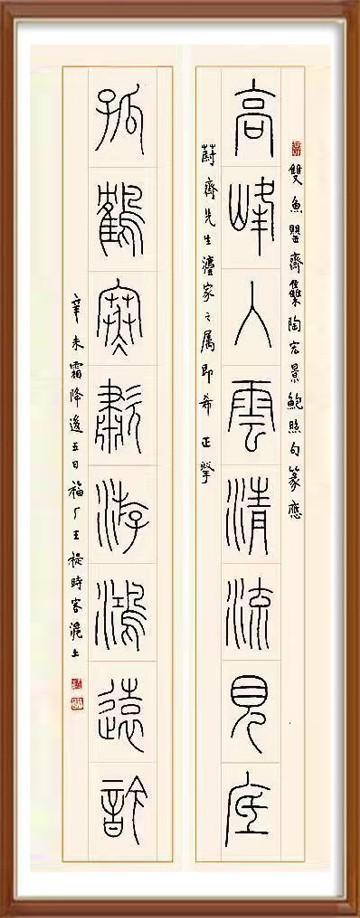 雙魚罌齋集陶宏景鮑照句篆應
高峰入雲清流見底
蔚齊先生灋家之属即希正掔
孤鶴寒歗游鴻遠訡
辛未霜降後五日福厂王禔時客滬上